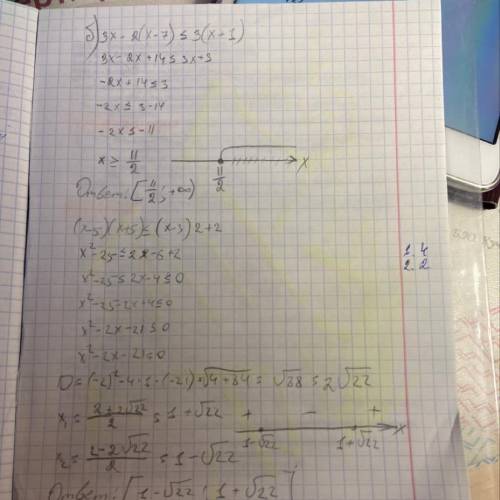 б) 3x - 2(x-7) ≤ 3(x-1)
3x - 2x + 14 ≤ 3x - 3
-2x + 14 ≤ 3
-2x ≤ 3 - 14
-2x ≤ -11
x ≥ 11/2
11/2
x
Ответ: [11/2; +∞)
(x-5)(x+5) ≤ (x-3)2+2
x²-25 ≤ 2x-6+2
x²-25 ≤ 2x-4 ≤ 0
x²-25-2x+4 ≤ 0
x²-2x-21 ≤ 0
x²-2x-21=0
D=(-2)²-4·1·(-21)=√4+84=√88=2√22
x₁=2+2√22/2=1+√22
+ - +
1-√22 1+√22 x
x₂=2-2√22/2=1-√22
Ответ: [1-√22; 1+√22]
1.4
2.2